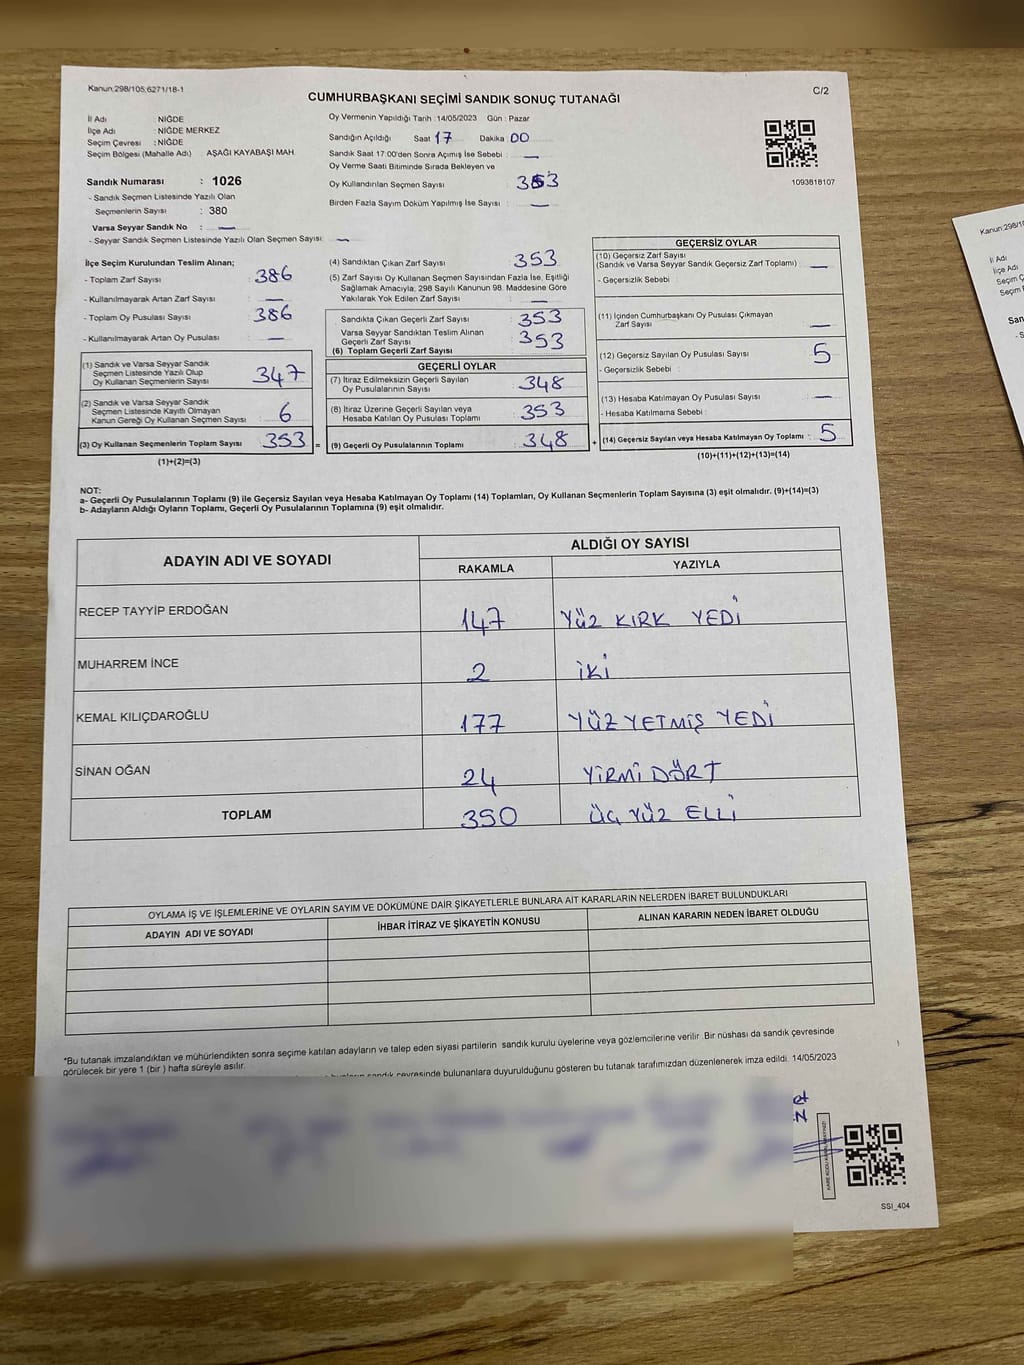 Kanun:298/105,6271/18-1
C/2
CUMHURBAŞKANI SEÇİMİ SANDIK SONUÇ TUTANAĞI
İl Adı : NİĞDE
İlçe Adı : NİĞDE MERKEZ
Seçim Çevresi : NİĞDE
Seçim Bölgesi (Mahalle Adı) AŞAĞI KAYABAŞI MAH.
Sandık Numarası : 1026
- Sandık Seçmen Listesinde Yazılı Olan
Seçmenlerin Sayısı : 380
Varsa Seyyar Sandık No : —
- Seyyar Sandık Seçmen Listesinde Yazılı Olan Seçmen Sayısı: —
Oy Vermenin Yapıldığı Tarih :14/05/2023 Gün : Pazar
Sandığın Açıldığı Saat 17 Dakika 00
Sandık Saat 17:00'den Sonra Açımış İse Sebebi : —
Oy Verme Saati Bitiminde Sırada Bekleyen ve
Oy Kullandırılan Seçmen Sayısı : 353
Birden Fazla Sayım Döküm Yapılmış İse Sayısı : —
1093818107
İlçe Seçim Kurulundan Teslim Alınan;
- Toplam Zarf Sayısı : 386
- Kullanılmayarak Artan Zarf Sayısı : —
- Toplam Oy Pusulası Sayısı : 386
- Kullanılmayarak Artan Oy Pusulası : —
(1) Sandık ve Varsa Seyyar Sandık
Seçmen Listesinde Yazılı Olup
Oy Kullanan Seçmenlerin Sayısı : 347
(2) Sandık ve Varsa Seyyar Sandık
Seçmen Listesinde Kayıtlı Olmayan
Kanun Gereği Oy Kullanan Seçmen Sayısı : 6
(3) Oy Kullanan Seçmenlerin Toplam Sayısı : 353 =
(1)+(2)=(3)
(4) Sandıktan Çıkan Zarf Sayısı : 353
(5) Zarf Sayısı Oy Kullanan Seçmen Sayısından Fazla İse, Eşitliği
Sağlamak Amacıyla, 298 Sayılı Kanunun 98. Maddesine Göre
Yakılarak Yok Edilen Zarf Sayısı : —
Sandıkta Çıkan Geçerli Zarf Sayısı : 353
Varsa Seyyar Sandıktan Teslim Alınan
Geçerli Zarf Sayısı : 353
(6) Toplam Geçerli Zarf Sayısı
GEÇERLİ OYLAR
(7) İtiraz Edilmeksizin Geçerli Sayılan
Oy Pusulalarının Sayısı : 348
(8) İtiraz Üzerine Geçerli Sayılan veya
Hesaba Katılan Oy Pusulası Toplamı : 353
(9) Geçerli Oy Pusulalarının Toplamı : 348 +
GEÇERSİZ OYLAR
(10) Geçersiz Zarf Sayısı
(Sandık ve Varsa Seyyar Sandık Geçersiz Zarf Toplamı) : —
- Geçersizlik Sebebi :
(11) İçinden Cumhurbaşkanı Oy Pusulası Çıkmayan
Zarf Sayısı : —
(12) Geçersiz Sayılan Oy Pusulası Sayısı : 5
- Geçersizlik Sebebi :
(13) Hesaba Katılmayan Oy Pusulası Sayısı : —
- Hesaba Katılmama Sebebi :
(14) Geçersiz Sayılan veya Hesaba Katılmayan Oy Toplamı : 5
(10)+(11)+(12)+(13)=(14)
NOT:
a- Geçerli Oy Pusulalarının Toplamı (9) ile Geçersiz Sayılan veya Hesaba Katılmayan Oy Toplamı (14) Toplamları, Oy Kullanan Seçmenlerin Toplam Sayısına (3) eşit olmalıdır. (9)+(14)=(3)
b- Adayların Aldığı Oyların Toplamı, Geçerli Oy Pusulalarının Toplamına (9) eşit olmalıdır.
ADAYIN ADI VE SOYADI
ALDIĞI OY SAYISI
RAKAMLA YAZIYLA
RECEP TAYYİP ERDOĞAN 147 YÜZ KIRK YEDİ
MUHARREM İNCE 2 İKİ
KEMAL KILIÇDAROĞLU 177 YÜZ YETMİŞ YEDİ
SİNAN OĞAN 24 YİRMİ DÖRT
TOPLAM 350 ÜÇ YÜZ ELLİ
OYLAMA İŞ VE İŞLEMLERİNE VE OYLARIN SAYIM VE DÖKÜMÜNE DAİR ŞİKAYETLERLE BUNLARA AİT KARARLARIN NELERDEN İBARET BULUNDUKLARI
ADAYIN ADI VE SOYADI İHBAR İTİRAZ VE ŞİKAYETİN KONUSU ALINAN KARARIN NEDEN İBARET OLDUĞU
*Bu tutanak imzalandıktan ve mühürlendikten sonra seçime katılan adayların ve talep eden siyasi partilerin sandık kurulu üyelerine veya gözlemcilerine verilir. Bir nüshası da sandık çevresinde
görülecek bir yere 1 (bir ) hafta süreyle asılır.
sandık çevresinde bulunanlara duyurulduğunu gösteren bu tutanak tarafımızdan düzenlenerek imza edildi. 14/05/2023
SSI_404
Kanun:298/1
İl Adı
İlçe Adı
Seçim Ç
Seçim
San
- S